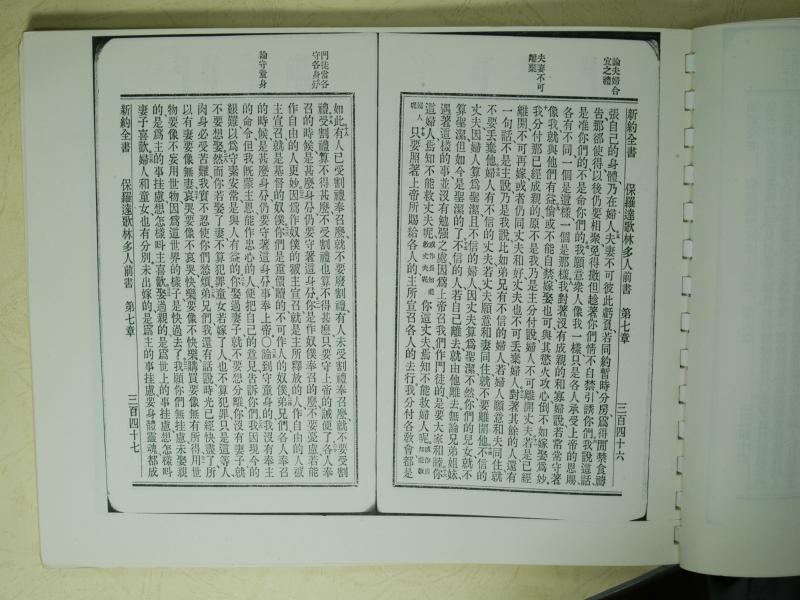 論夫婦合
宜之禮
夫妻不可
離棄
新約全書 保羅達歌林多人前書 第七章 三百四十六
張自己的身體乃在婦人夫妻不可彼此虧負若同約暫時分房爲得閒禁食禱
告那卻使得以後仍要相聚免得撒但趁著你們情不自禁引誘你們我說這話
是准你們的不是命你們的我願意衆人像我一樣只是各人承受上帝的恩賜
各有不同一個是這樣一個是那樣我對著沒有成親的和寡婦說若常常守著
像我就與他們有益倘或不能自禁嫁娶也可與其慾火攻心倒不如嫁娶爲妙
我分付那已經成親的原不是我乃是主分付說婦人不可離開丈夫若是已經
離開不可再嫁或者仍同丈夫和好丈夫也不可丟棄婦人對著其餘的人還有
一句話不是主說乃是我說比如弟兄有不信的婦人若婦人願意和夫同住就
不要丟棄他婦人有不信的丈夫若丈夫願意和妻同住就不要離開他不信的
丈夫因婦人算爲聖潔且不信的婦人因丈夫算爲聖潔不然你們的兒女就不
算聖潔但如今是聖潔的了不信的人若自己離去就由他離去無論兄弟姐妹
遇著這樣的事並沒有勉強之處因爲上帝召我們作門徒的是要大家和睦你
這婦人焉知不能救丈夫呢 你這丈夫焉知不能救婦人呢
只要照著上帝所賜給各人的主所宣召各人的去行我分付各敎會都是
門徒當各
守各身分
論守童身
如此有人已受割禮奉召麽就不要廢割禮有人未受割禮奉召麽就不要受割
禮受割禮算不得甚麽不受割禮也算不得甚麽只要守上帝的誡便了各人奉
召的時候是甚麽身分仍要守著這身分你是作奴僕奉召的麽不要憂慮若能
作自由的人更妙因爲作奴僕的被主宣召就是主所釋放的人作自由的人被
主宣召就是基督的奴僕你們是重價贖的不可作人的奴僕弟兄們各人奉召
的時候是甚麽身分仍要守著這身分事奉上帝〇論到守童身的我沒有奉主
的命令但我既蒙主恩能作忠心的人便把自己的意見告訴你們我因現今的
艱難以爲守素安常是與人有益的你娶過妻子就不要想分離你沒有妻子就
不要想娶然而你若娶了妻不算犯罪童女若嫁了人也不算犯罪只是這等人
肉身必受苦難我實不忍使你們愁煩弟兄們我還有話說時光已經快盡了所
以有妻要像無妻哀哭要像不哀哭快樂要像不快樂購買要像無有所得用世
物要像不妄用世物因爲這世界的樣子是快過去了我願你們無挂慮未娶親
的是爲主的事挂慮想怎樣叫主喜歡娶過親的是爲世上的事挂慮想怎樣叫
妻子喜歡婦人和童女也有分別未出嫁的是爲主的事挂慮要身體靈魂都成
新約全書 保羅達歌林多人前書 第七章 三百四十七